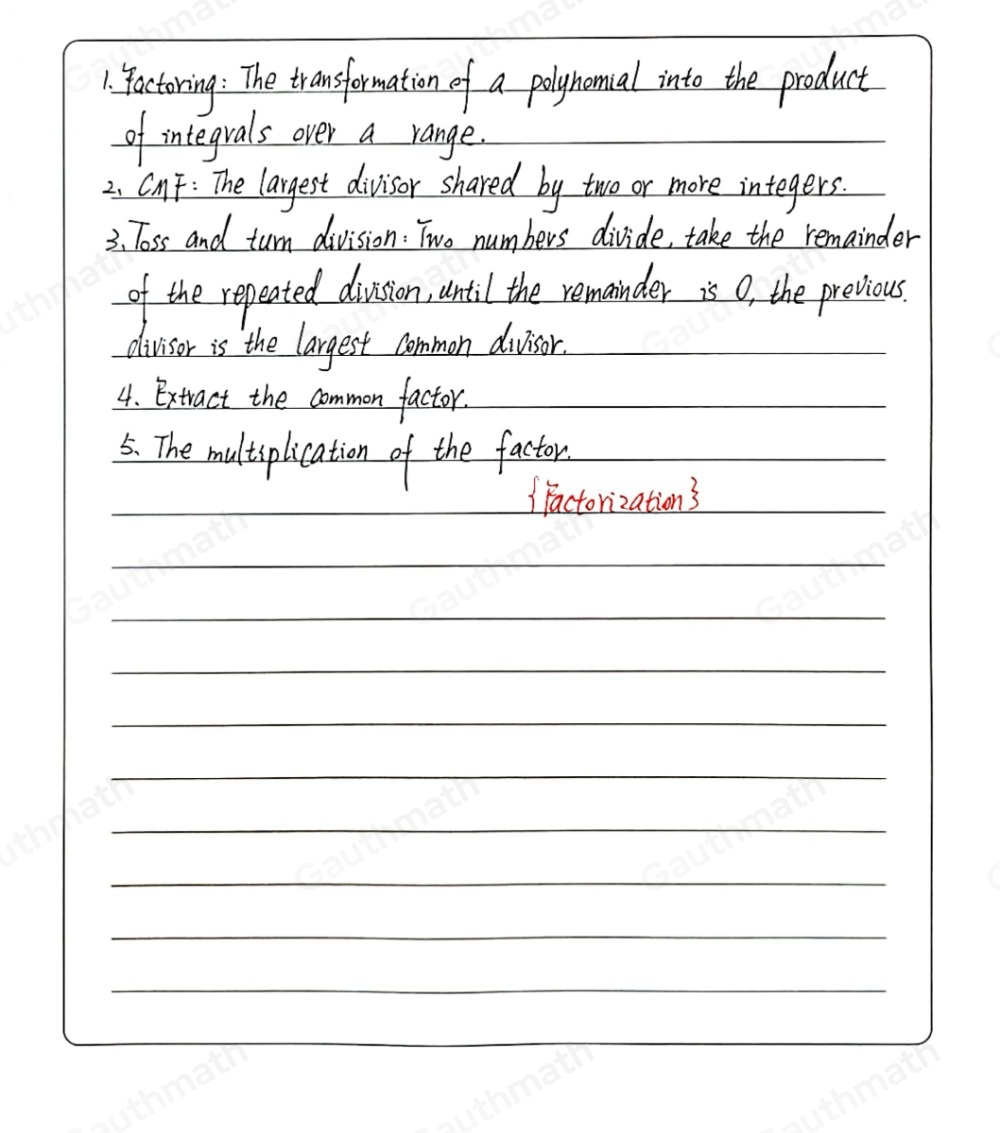 1. Factoring: The transformation of a polynomial into the product
of integrals over a range.
2. CMF: The largest divisor shared by two or more integers.
3. Toss and turn division: Two numbers divide, take the remainder
of the repeated division, until the remainder is 0, the previous.
divisor is the largest common divisor.
4. Extract the common factor.
5. The multiplication of the factor.
{Factorization}
Gauthmath